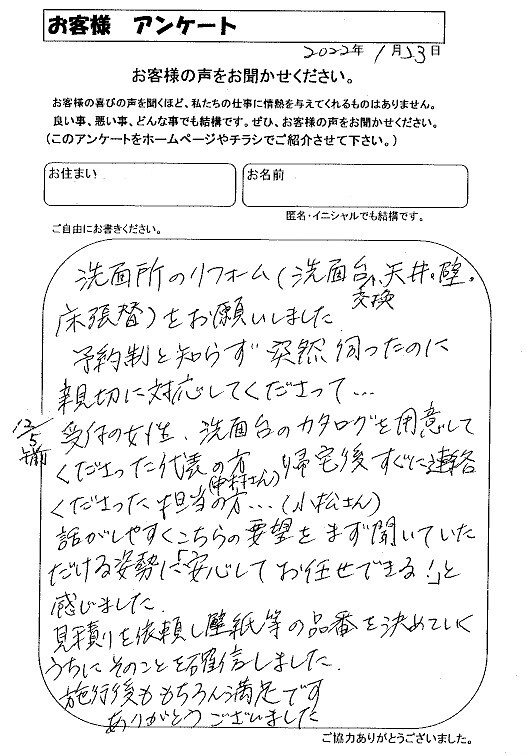 お客様 アンケート
2022年 1月23日
お客様の声をお聞かせください。
お客様の喜びの声を聞くほど、私たちの仕事に情熱を与えてくれるものはありません。
良い事、悪い事、どんな事でも結構です。ぜひ、お客様の声をお聞かせください。
(このアンケートをホームページやチラシでご紹介させて下さい。)
お住まい
お名前
匿名・イニシャルでも結構です。
ご自由にお書きください。
洗面所のリフォーム(洗面台、天井・壁・
交換
床張替)をお願いしました
予約制と知らず突然伺ったのに
親切に対応してくださって…
12/5
午前
受付の女性、洗面台のカタログを用意して
くださった代表の方 帰宅後すぐに連絡
(中村さん)
くださった担当の方…(小松さん)
話がしやすくこちらの要望をまず聞いていた
だける姿勢に「安心してお任せできる!」と
感じました.
見積りを依頼し壁紙等の品番を決めていく
うちにそのことを確信しました.
施行後ももちろん満足です
ありがとうございました
ご協力ありがとうございました。